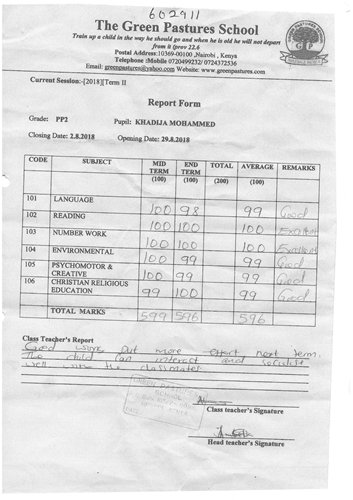 602911
The Green Pastures School
Train up a child in the way he should go and when he is old he will not depart
from it (prov 22.6
Postal Address:10369-00100 ,Nairobi , Kenya
Telephone :Mobile 0720499232/ 0724372536
Email: greenpastures@yahoo.com Website: www.greenpastures.com
Current Session:-[2018][Term II
Report Form
Grade: PP2 Pupil: KHADIJA MOHAMMED
Closing Date: 2.8.2018 Opening Date: 29.8.2018
CODE SUBJECT MID TERM (100) END TERM (100) TOTAL (200) AVERAGE (100) REMARKS
101 LANGUAGE 100 98 99 Good
102 READING 100 100 100 Excellent
103 NUMBER WORK 100 100 100 Excellent
104 ENVIRONMENTAL 100 99 99 Good
105 PSYCHOMOTOR & CREATIVE 100 99 99 Good
106 CHRISTIAN RELIGIOUS EDUCATION 99 100 99 Good
TOTAL MARKS 599 596 596
Class Teacher's Report
Good work, put more effort next term.
The child can interact and socialise
well with the classmates
Class teacher's Signature
Head teacher's Signature